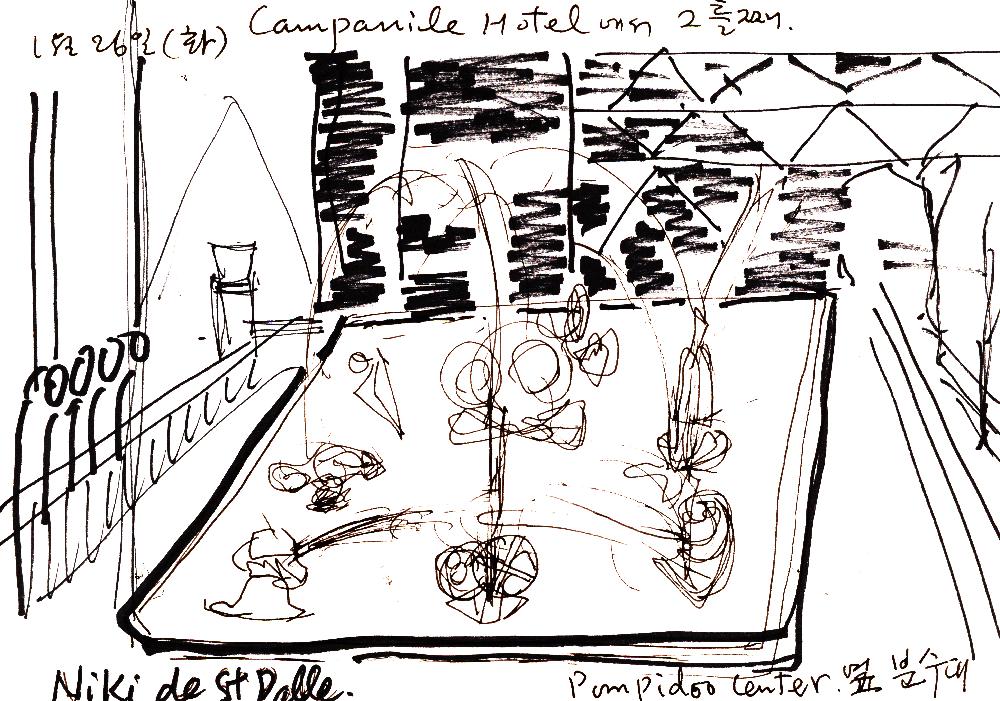 1월 26일(화) Campanile Hotel에서 2틀째.
Niki de St Dalle.
Pompidoo Center. 옆 분수대